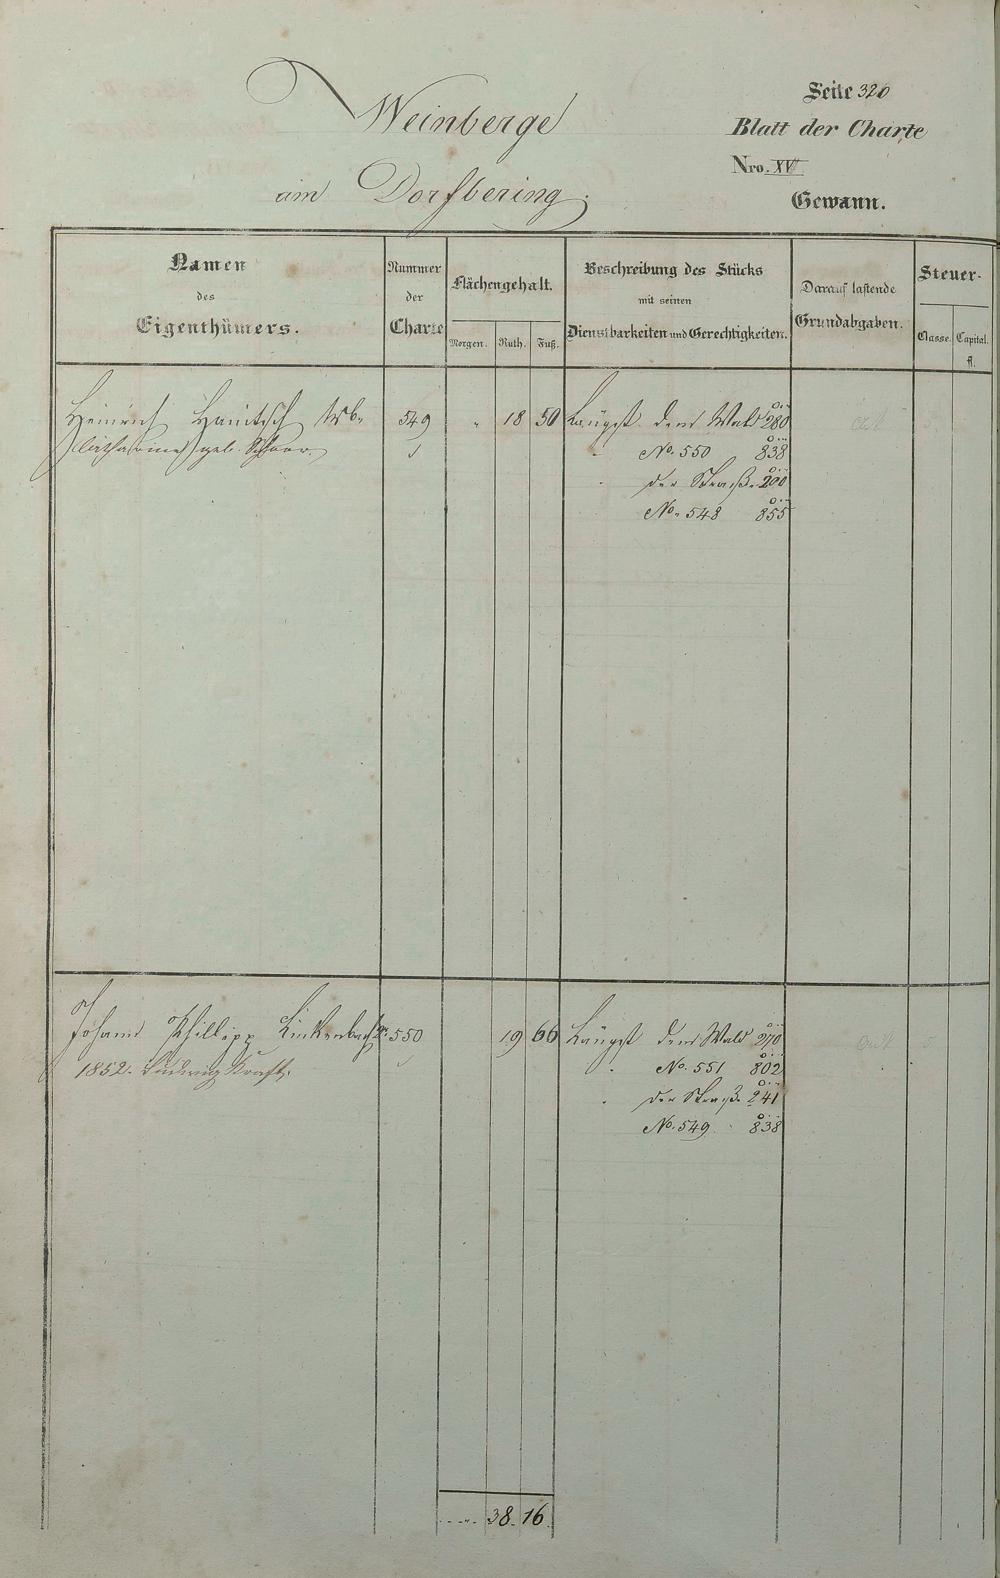 Weinberge
am Dorfbering.
Seite 320
Blatt der Charte
Nro. XV
Gewann.
Namen
des
Eigenthümers.
Nummer
der
Charte
Flächengehalt.
Morgen. Ruth. Fuß.
Beschreibung des Stücks
mit seinen
Dienstbarkeiten und Gerechtigkeiten.
Darauf lastende
Grundabgaben.
Steuer-
Classe. Capital.
fl.
Heinrich Hanitsch Wb. 549 " 18 50 Längst dem Wald 280
Catharina geb. No. 550 838
der Straß. 200
No. 548 855
Johann Phillipp Linkenbach 550 19 66 Längst dem Wald 270
1852. Ludwig Kraft. No. 551 802
der Straß. 241
No. 549 838
38. 16